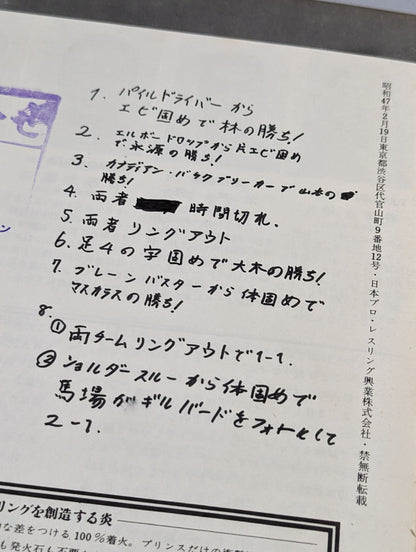 昭和47年2月19日東京都渋谷区代官山町9番地12号・日本プロ・レスリング興業株式会社・禁無断転載
1. パイルドライバーから
エビ固めで林の勝ち!
2. エルボードロップから片エビ固め
で永源の勝ち!
3. カナディアン・バックブリーカーで山本の
勝ち!
4. 両者 時間切れ.
5. 両者リングアウト
6. 足4の字固めで大木の勝ち!
7. ブレーンバスターから体固めで
マスカラスの勝ち!
8.
① 両チームリングアウトで1-1.
② ショルダースルーから体固めで
馬場がギルバードをフォールして
2-1.
リングを創造する炎
な差をつける100%着火。プリンスだけの
も発火石も不要